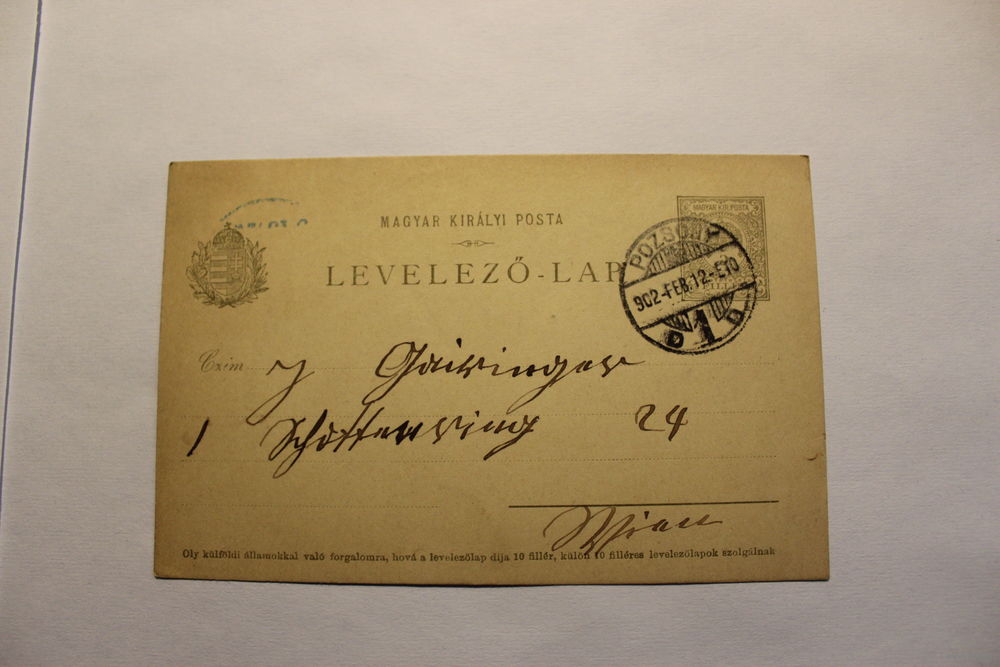 MAGYAR KIRÁLYI POSTA
MAGYAR KIR. POSTA
LEVELEZŐ-LAP
FILLÉR
POZSONY
902-FEB.12-E10
D 1 D
Czim J Gairinger
1 Schottenring 24
Wien
Oly külföldi államokkal való forgalomra, hová a levelezőlap dija 10 fillér, külön 10 filléres levelezőlapok szolgálnak